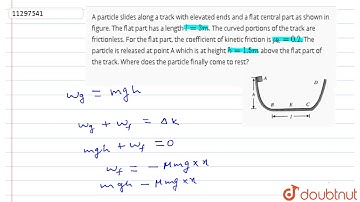 11297541
A particle slides along a track with elevated ends and a flat central part as shown in
figure. The flat part has a length l = 3m. The curved portions of the track are
frictionless. For the flat part, the coefficient of kinetic friction is μₖ = 0.2. The
particle is released at point A which is at height h = 1.5m above the flat part of
the track. Where does the particle finally come to rest?
A D
h
B E C
l
Wg = mgh
Wg + Wf = Δk
mgh + Wf = 0
Wf = - μmg × x
mgh - μmg × x
doubtnut